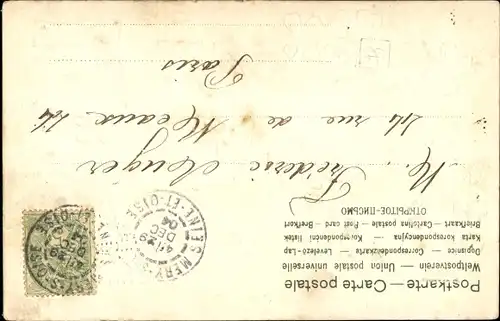 Postkarte — Carte postale
Weltpostverein — Union postale universelle
Dopisnice — Correspondenzkarte — Levelező-Lap
Karta korespondencyjna — Korrespondenční lístek
Briefkaart — Cartolina postale — Post card — Brefkort
ОТКРЫТОЕ-ПИСЬМО
M. Fréderic
Rue de Meaux
Paris
MERY-S-OISE
SEINE-ET-OISE
DEC
04